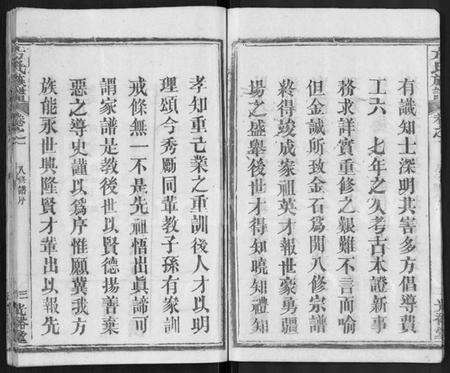 有識知士深明其害多方倡導費
工六 七年之久考古本證新事
格求詳實重修之艱難不言而喻
但金誠所致金石爲開八修宗譜
終得竣成家祖英才報世豪勇疆
場之盛舉後世才得知曉知禮知
孝知重亡業之重訓後人才以明
理頌今秀勵同輩教子孫有家訓
戒條無一不是先祖悟出眞諦可
謂家譜是教後世以賢德揚善棄
惡之導史謹以爲序惟願冀我方
族能永世興隆賢才輩出以報先
八修譜序
三